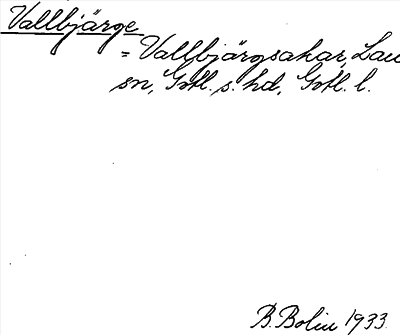 Vallbjärge
= Vallbjärgsakar, Lau
sn, Gotl. s. hd, Gotl. l.
B. Bolin 1933.